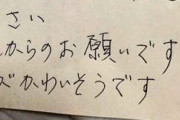 さい
からのお願いです
ズかわいそうです